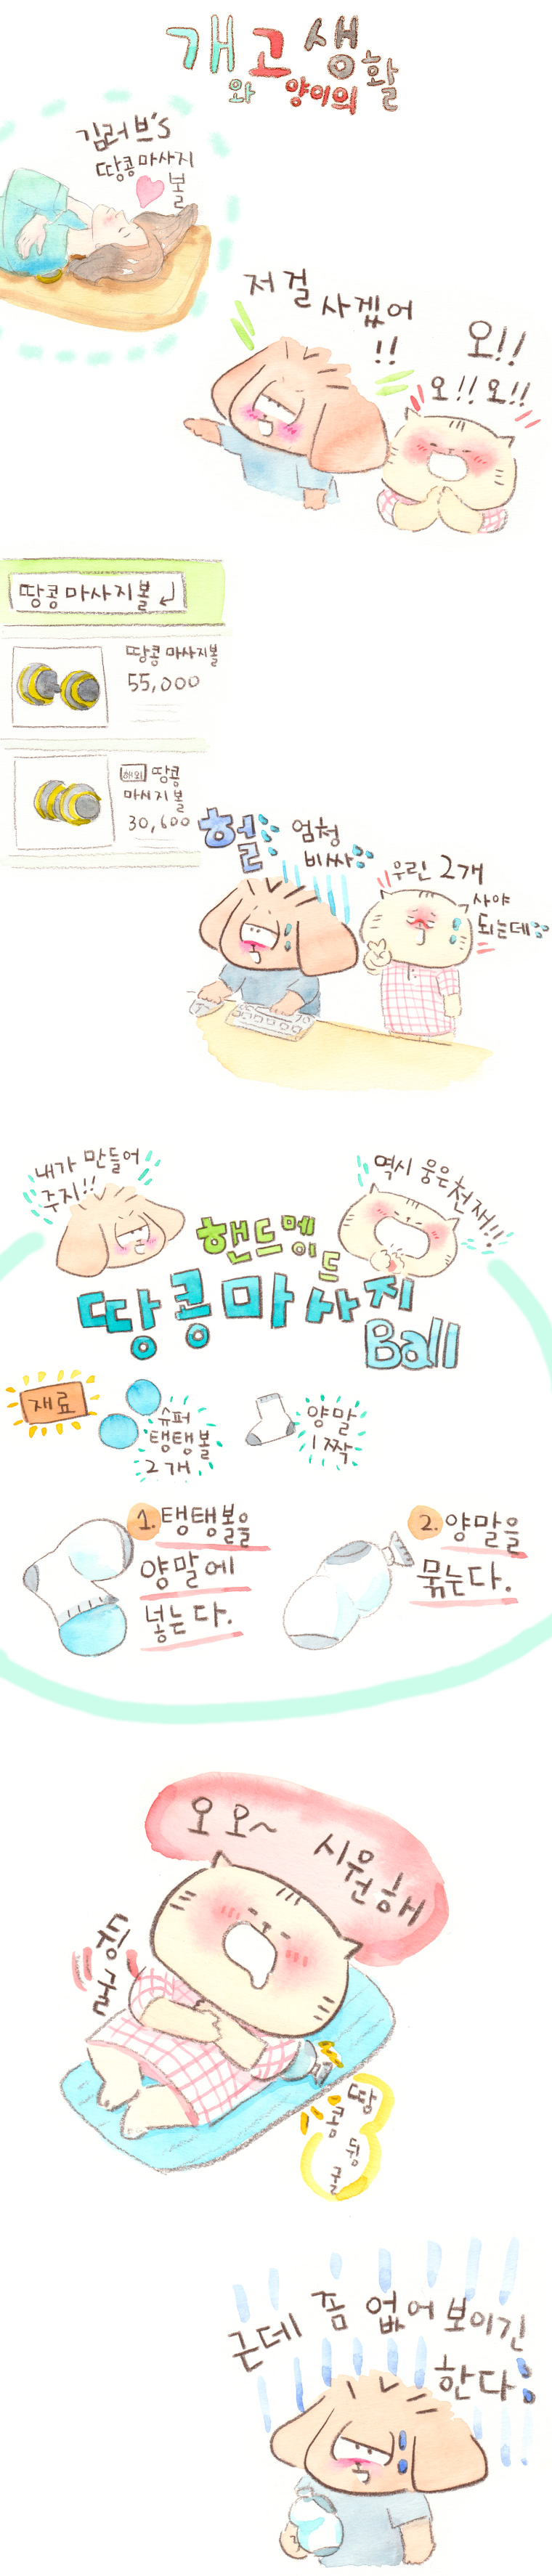 개와고양이의생활
김러브's
땅콩마사지
볼
저걸
사겠어
!!
오!!
오!!오!!
땅콩마사지볼
땅콩 마사지볼
55,000
해외 땅콩
마사지볼
30,600
헐
엄청
비싸
우린 2개
사야
되는데
내가 만들어
주지!!
역시 웅은천재!!
핸드메이드
땅콩마사지
Ball
재료
슈퍼
탱탱볼
2개
양말
1짝
1. 탱탱볼을
양말에
넣는다.
2. 양말을
묶는다.
오오~ 시원해
뒹굴
땅콩
뒹굴
근데 좀 없어보이긴
한다